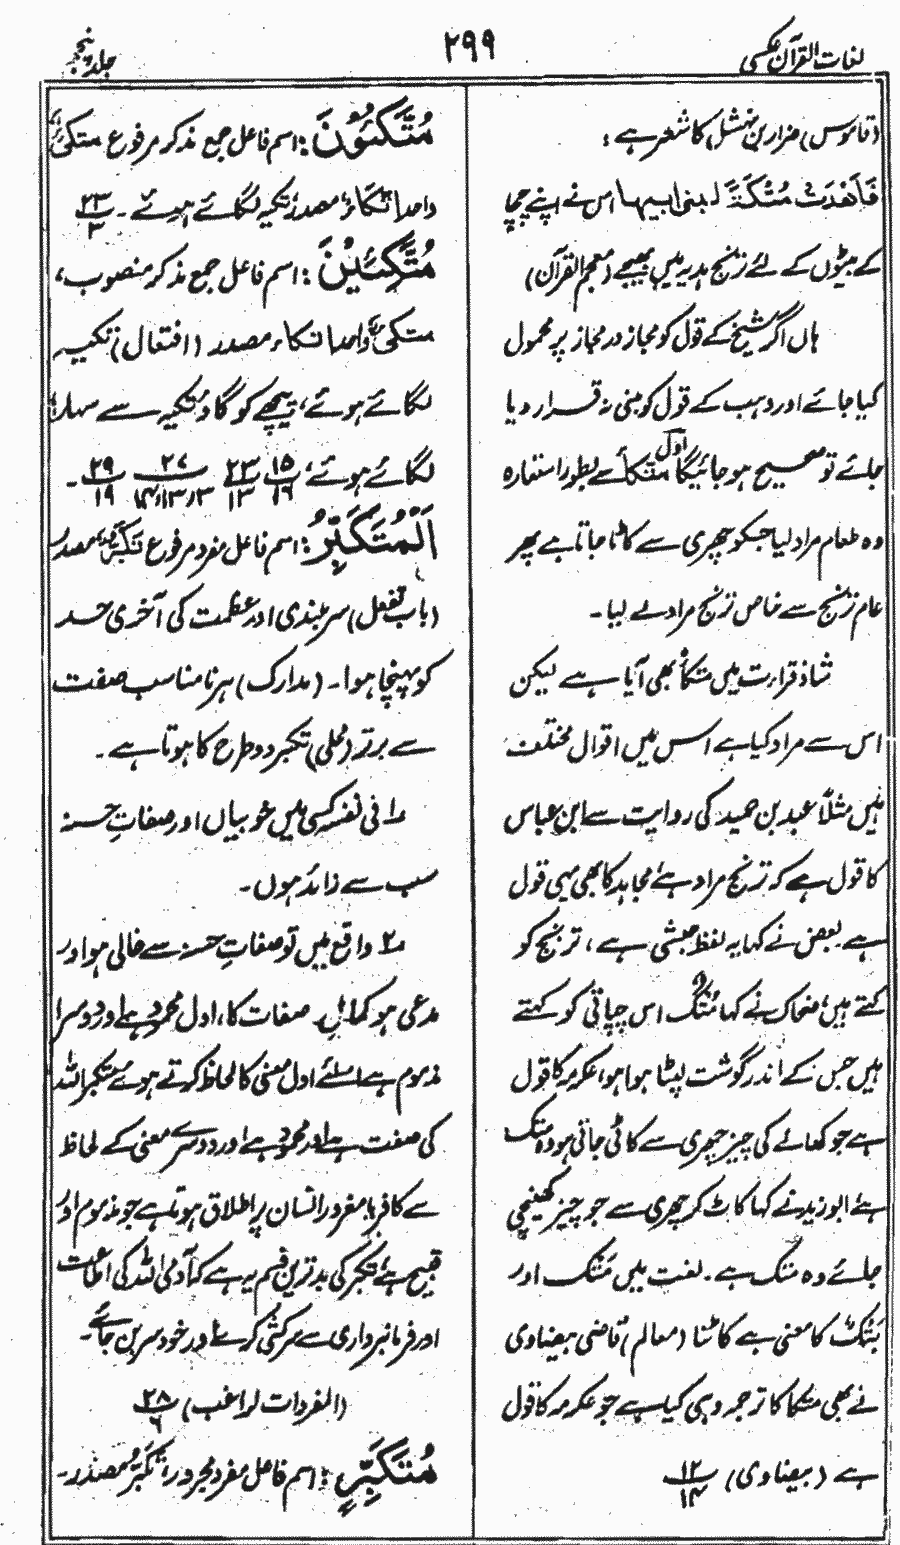 لغات القرآن عکسی
۲۹۹
جلد پنجم
(قاموس) ضرار بن نہشل کا شعر ہے :
فَاَهْدَتْ مُتْكَةً لبنی ابیہا اس نے اپنے چچا
کے بیٹوں کے لئے ترنج ہدیہ میں بھیجے (معجم القرآن)
ہاں اگر شیخ کے قول کو مجاز در مجاز پر محمول
کیا جائے اور وہب کے قول کو مبنی نہ قرار دیا
جائے تو صحیح ہو جائیگا اول متکأ سے بطور استعارہ
وہ طعام مراد لیا جسکو چھری سے کاٹا جاتا ہے پھر
عام ترنج سے خاص ترنج مراد لے لیا۔
شاذ قراءت میں متکأ بھی آیا ہے لیکن
اس سے مراد کیا ہے اس میں اقوال مختلف
ہیں مثلاً عبد بن حمید کی روایت سے ابن عباس
کا قول ہے کہ ترنج مراد ہے، مجاہد کا بھی یہی قول
ہے بعض نے کہا یہ لفظ حبشی ہے، ترنج کو
کہتے ہیں، ضحاک نے کہا مُتْكٌ اس چپاتی کو کہتے
ہیں جس کے اندر گوشت لپٹا ہوا ہو، عکرمہ کا قول
ہے جو کھانے کی چیز چھری سے کاٹی جاتی ہو وہ متک
ہے، ابو زید نے کہا کاٹ کر چھری سے جو چیز کھینچی
جائے وہ متک ہے۔ لغت میں مَتْک اور
بَتْکٌ کا معنی ہے کاٹنا (معالم) قاضی بیضاوی
نے بھی متکا کا ترجمہ وہی کیا ہے جو عکرمہ کا قول
ہے (بیضاوی) ۱۲/۱۴
مُتَّكِئُوْنَ : اسم فاعل جمع مذکر مرفوع متکئ
واحد اتکاءٌ مصدر، تکیہ لگائے ہوئے۔ ۲۳/۳
مُتَّكِئِیْنَ : اسم فاعل جمع مذکر منصوب،
متکئ واحد اتکاء مصدر (افتعال) تکیہ
لگائے ہوئے، پیچھے کو گاؤ تکیہ سے سہارا
لگائے ہوئے، ۱۵/۱۶ ۲۳/۱۳ ۲۷/۳،۱۳،۱۴ ۲۹/۱۹ ۔
اَلْمُتَكَبِّرُ : اسم فاعل مفرد مرفوع تَکَبُّر مصدر
(باب تفعل) سربلندی اور عظمت کی آخری حد
کو پہنچا ہوا۔ (مدارک) ہر نا مناسب صفت
سے برتر (محلی) تکبر دو طرح کا ہوتا ہے۔
۱ فی نفسہ کسی میں خوبیاں اور صفاتِ حسنہ
سب سے زائد ہوں۔
۲ واقع میں تو صفاتِ حسنہ سے خالی ہو اور
مدعی ہو کمالِ صفات کا، اول محمود ہے اور دوسرا
مذموم ہے اسلئے اول معنی کا لحاظ کرتے ہوئے متکبر اللہ
کی صفت ہے اور محمود ہے اور دوسرے معنی کے لحاظ
سے کافر یا مغرور انسان پر اطلاق ہوتا ہے جو مذموم اور
قبیح ہے، تکبر کی بدترین قسم یہ ہے کہ آدمی اللہ کی اطاعت
اور فرمانبرداری سے سرکشی کرے اور خود سر بن جائے۔
(المفردات لراغب) ۲۸/۶
مُتَكَبِّرٍ : اسم فاعل مفرد مجرور، تکبّر مصدر۔